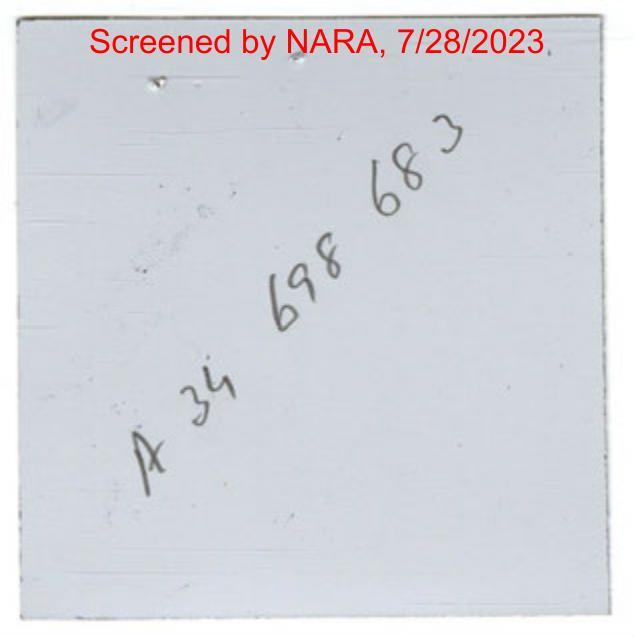 Screened by NARA, 7/28/2023
A 34 698 683